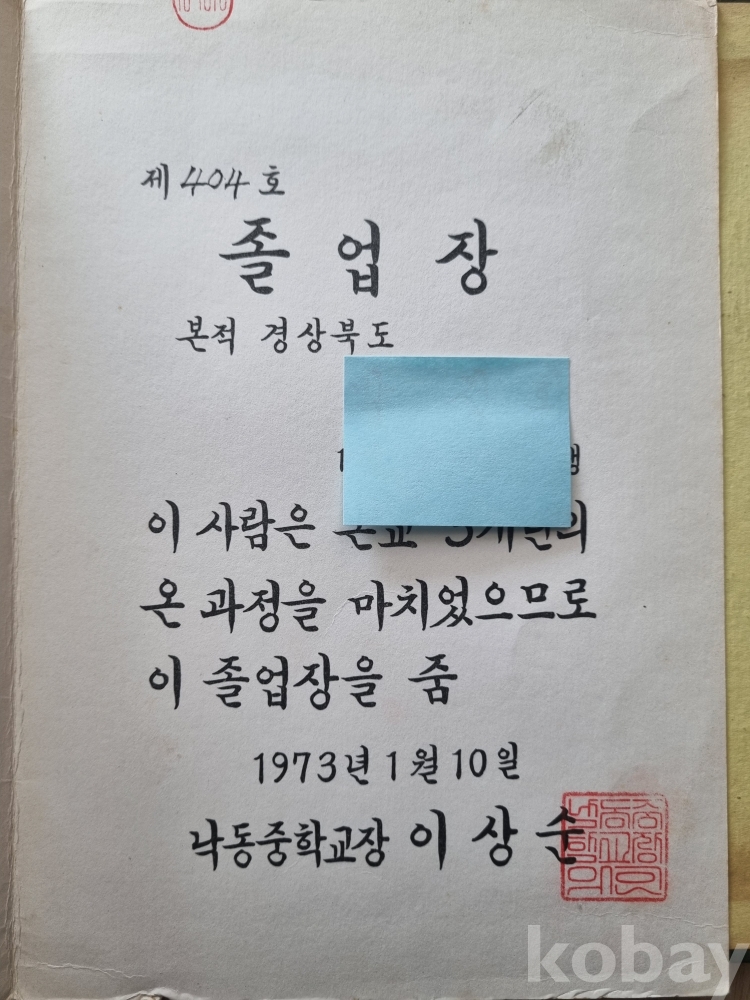 제 404 호
졸업장
본적 경상북도
이 사람은 본교 3개년의
온 과정을 마치었으므로
이 졸업장을 줌
1973년 1월 10일
낙동중학교장 이상순
kobay